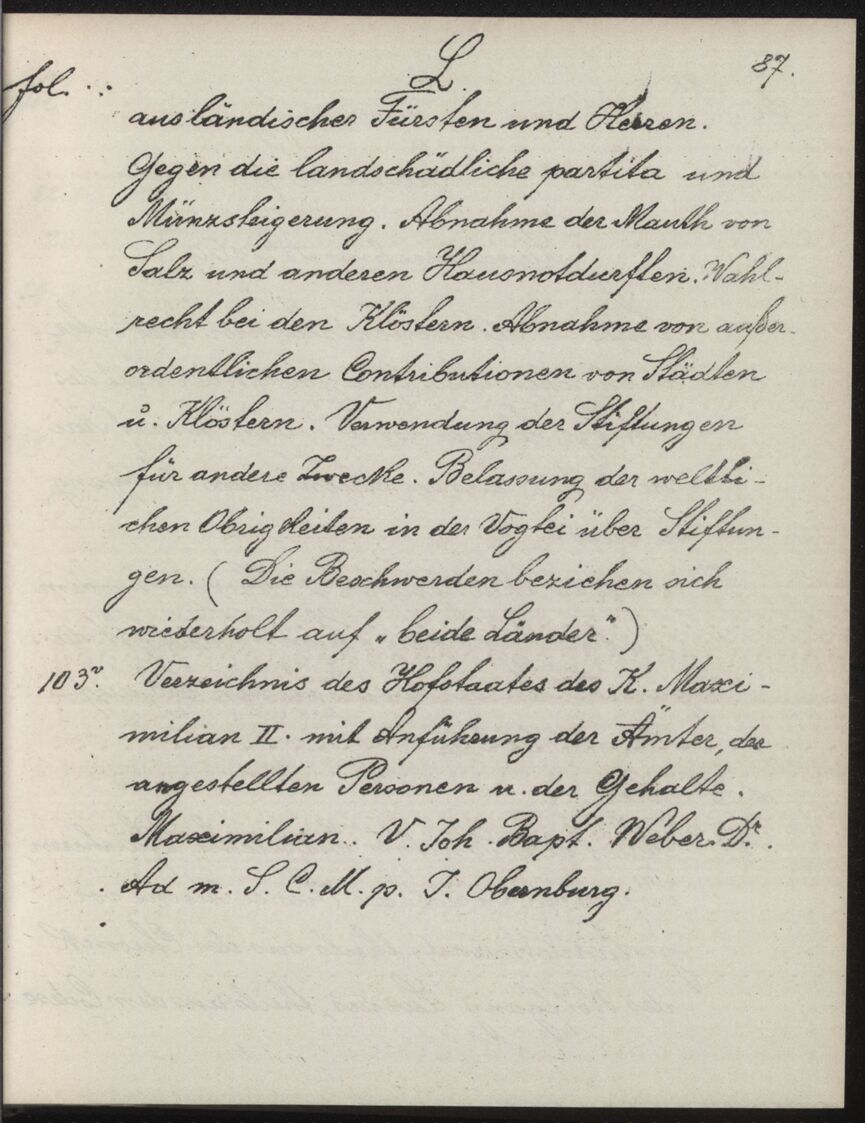 L. 87.
fol. :
ausländischer Fürsten und Herren.
Gegen die landschädliche partita und
Münzsteigerung. Abnahme der Mauth von
Salz und anderen Hausnotdurften. Wahl-
recht bei den Klöstern. Abnahme von außer-
ordentlichen Contributionen von Städten
u. Klöstern. Verwendung der Stiftungen
für andere Zwecke. Belassung der weltli-
chen Obrigkeiten in der Vogtei über Stiftun-
gen. (Die Beschwerden beziehen sich
wiederholt auf „beide Länder".)
103v. Verzeichnis des Hofstaates des K. Maxi-
milian II. mit Anführung der Ämter, der
angestellten Personen u. der Gehalte.
Maximilian. V. Joh. Bapt. Weber. Dr.
Ad m. S. C. M. p. I. Obernburg.